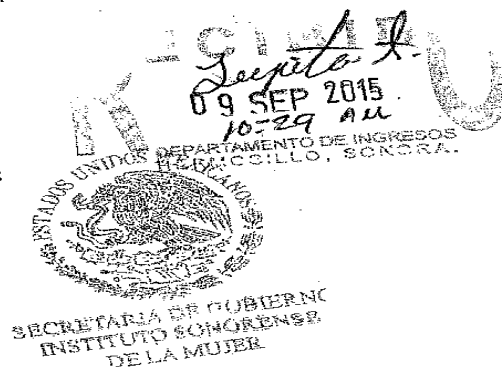 RECIBIDO
Lupita A.
09 SEP 2015
10=29 AM
DEPARTAMENTO DE INGRESOS
HERMOSILLO, SONORA.
ESTADOS UNIDOS MEXICANOS
SECRETARIA DE GOBIERNO
INSTITUTO SONORENSE
DE LA MUJER